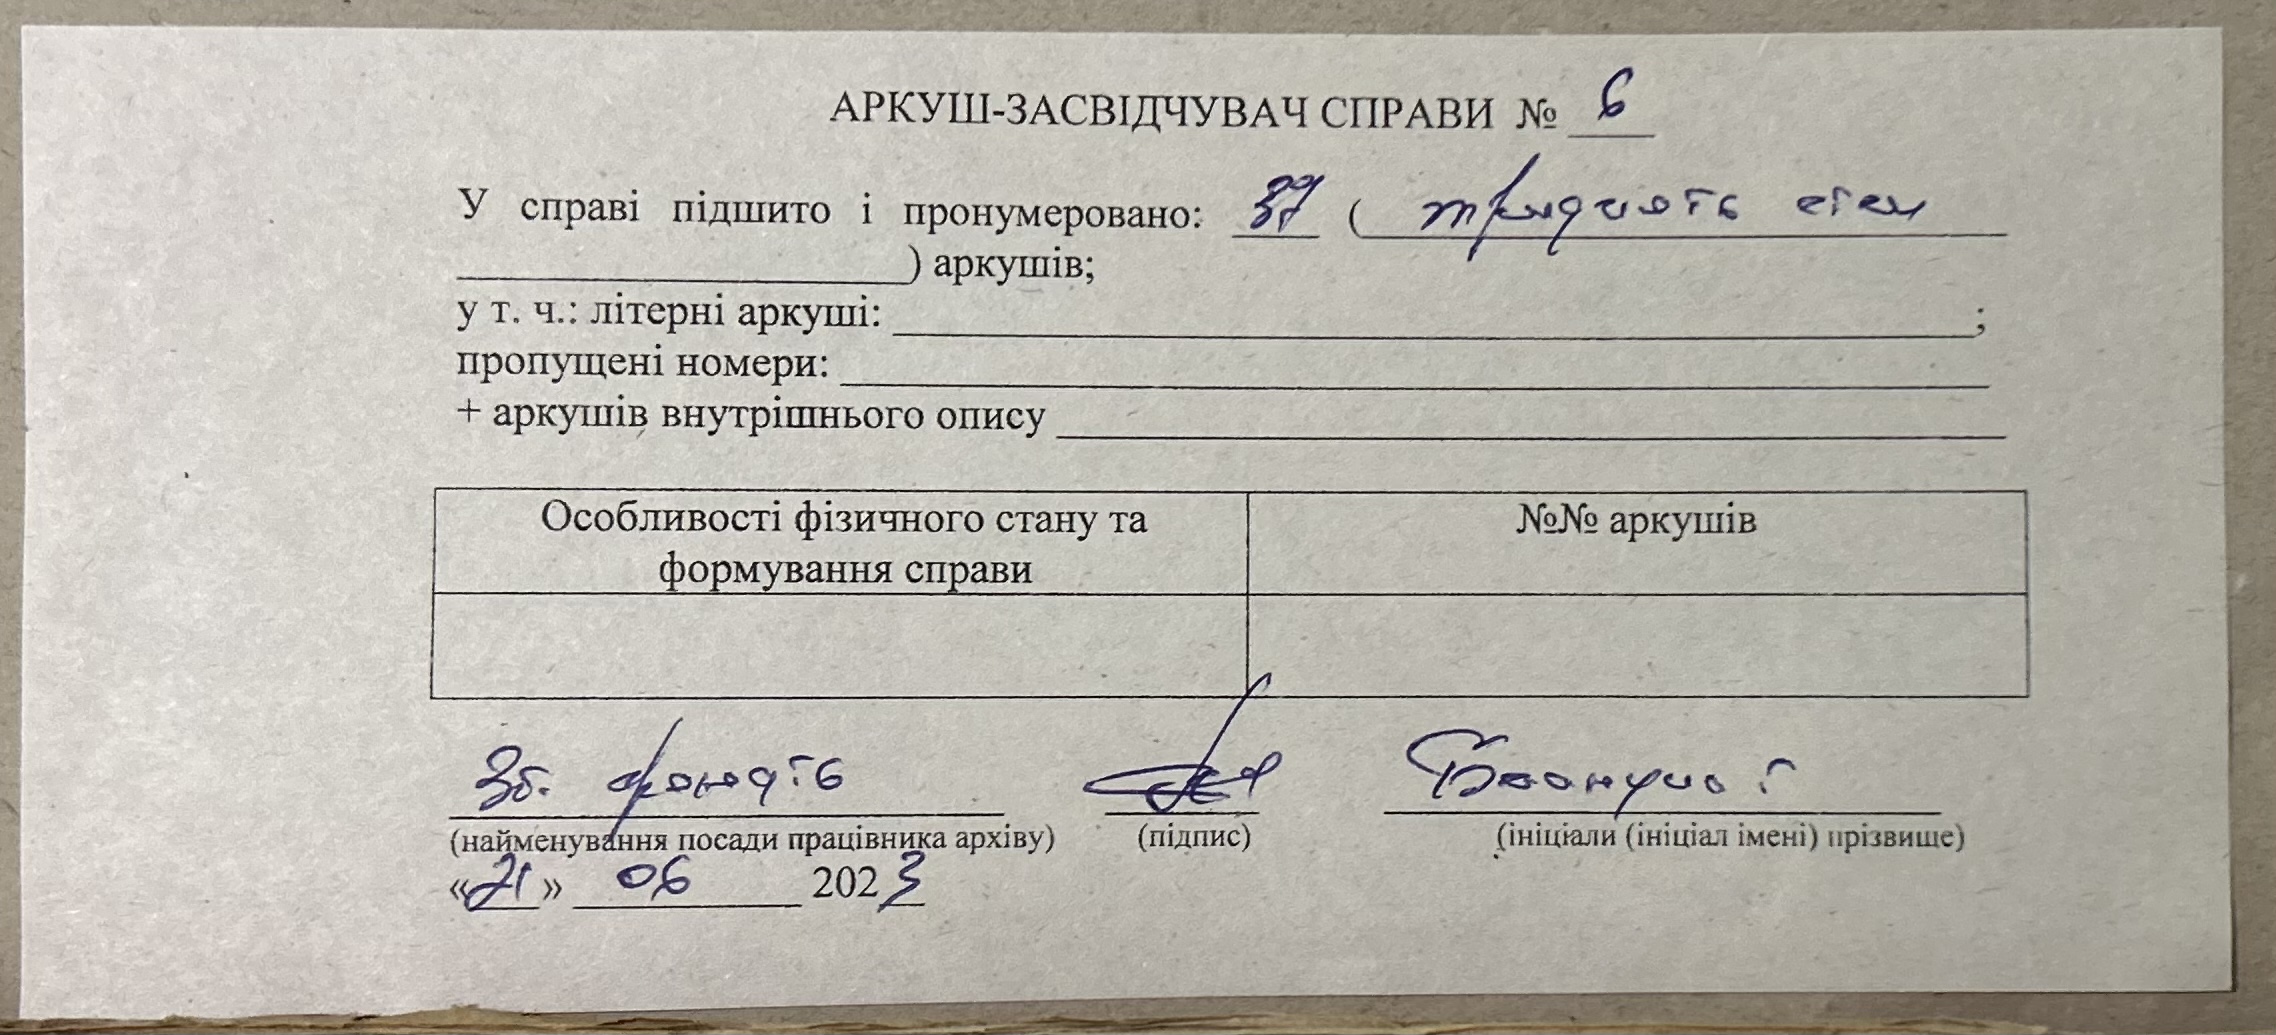 АРКУШ-ЗАСВІДЧУВАЧ СПРАВИ № 6
У справі підшито і пронумеровано: 37 ( тридцять сім
) аркушів;
у т. ч.: літерні аркуші: ;
пропущені номери:
+ аркушів внутрішнього опису
Особливості фізичного стану та
формування справи
№№ аркушів
Зб. фондів
(найменування посади працівника архіву) (підпис) (ініціали (ініціал імені) прізвище)
«21» 06 2023